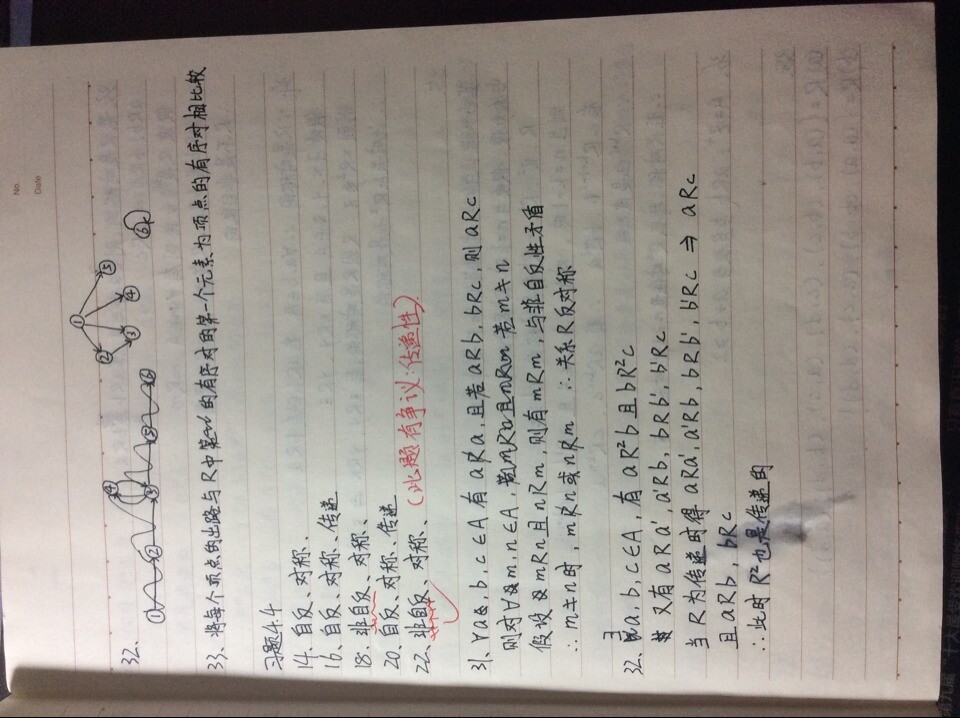 No.
Date
32.
① ② ③ ④ ⑤ ⑥
① ② ③ ④ ⑤ ⑥
33、将每个顶点的出路与R中 的有序对的第一个元素为顶点的有序对相比较
习题4.4
14、自反、对称、
16、自反、对称、传递
18、非自反、对称、
20、自反、对称、传递
22、非自反、对称、(此题有争议:传递性)
31、∀a,b,c∈A 有 aR̸a,且若 aRb,bRc,则 aRc
则对∀m,n∈A,若m≠n
假设 mRn且nRm,则有mRm,与非自反性矛盾
∴m≠n时,mR̸n或nR̸m ∴关系R反对称
32、∃a,b,c∈A,有 aR²b且bR²c
又有 aRa',a'Rb,bRb',b'Rc
当R为传递时得 aRa',a'Rb,bRb',b'Rc ⇒ aRc
且aRb,bRc
∴此时R²也是传递的